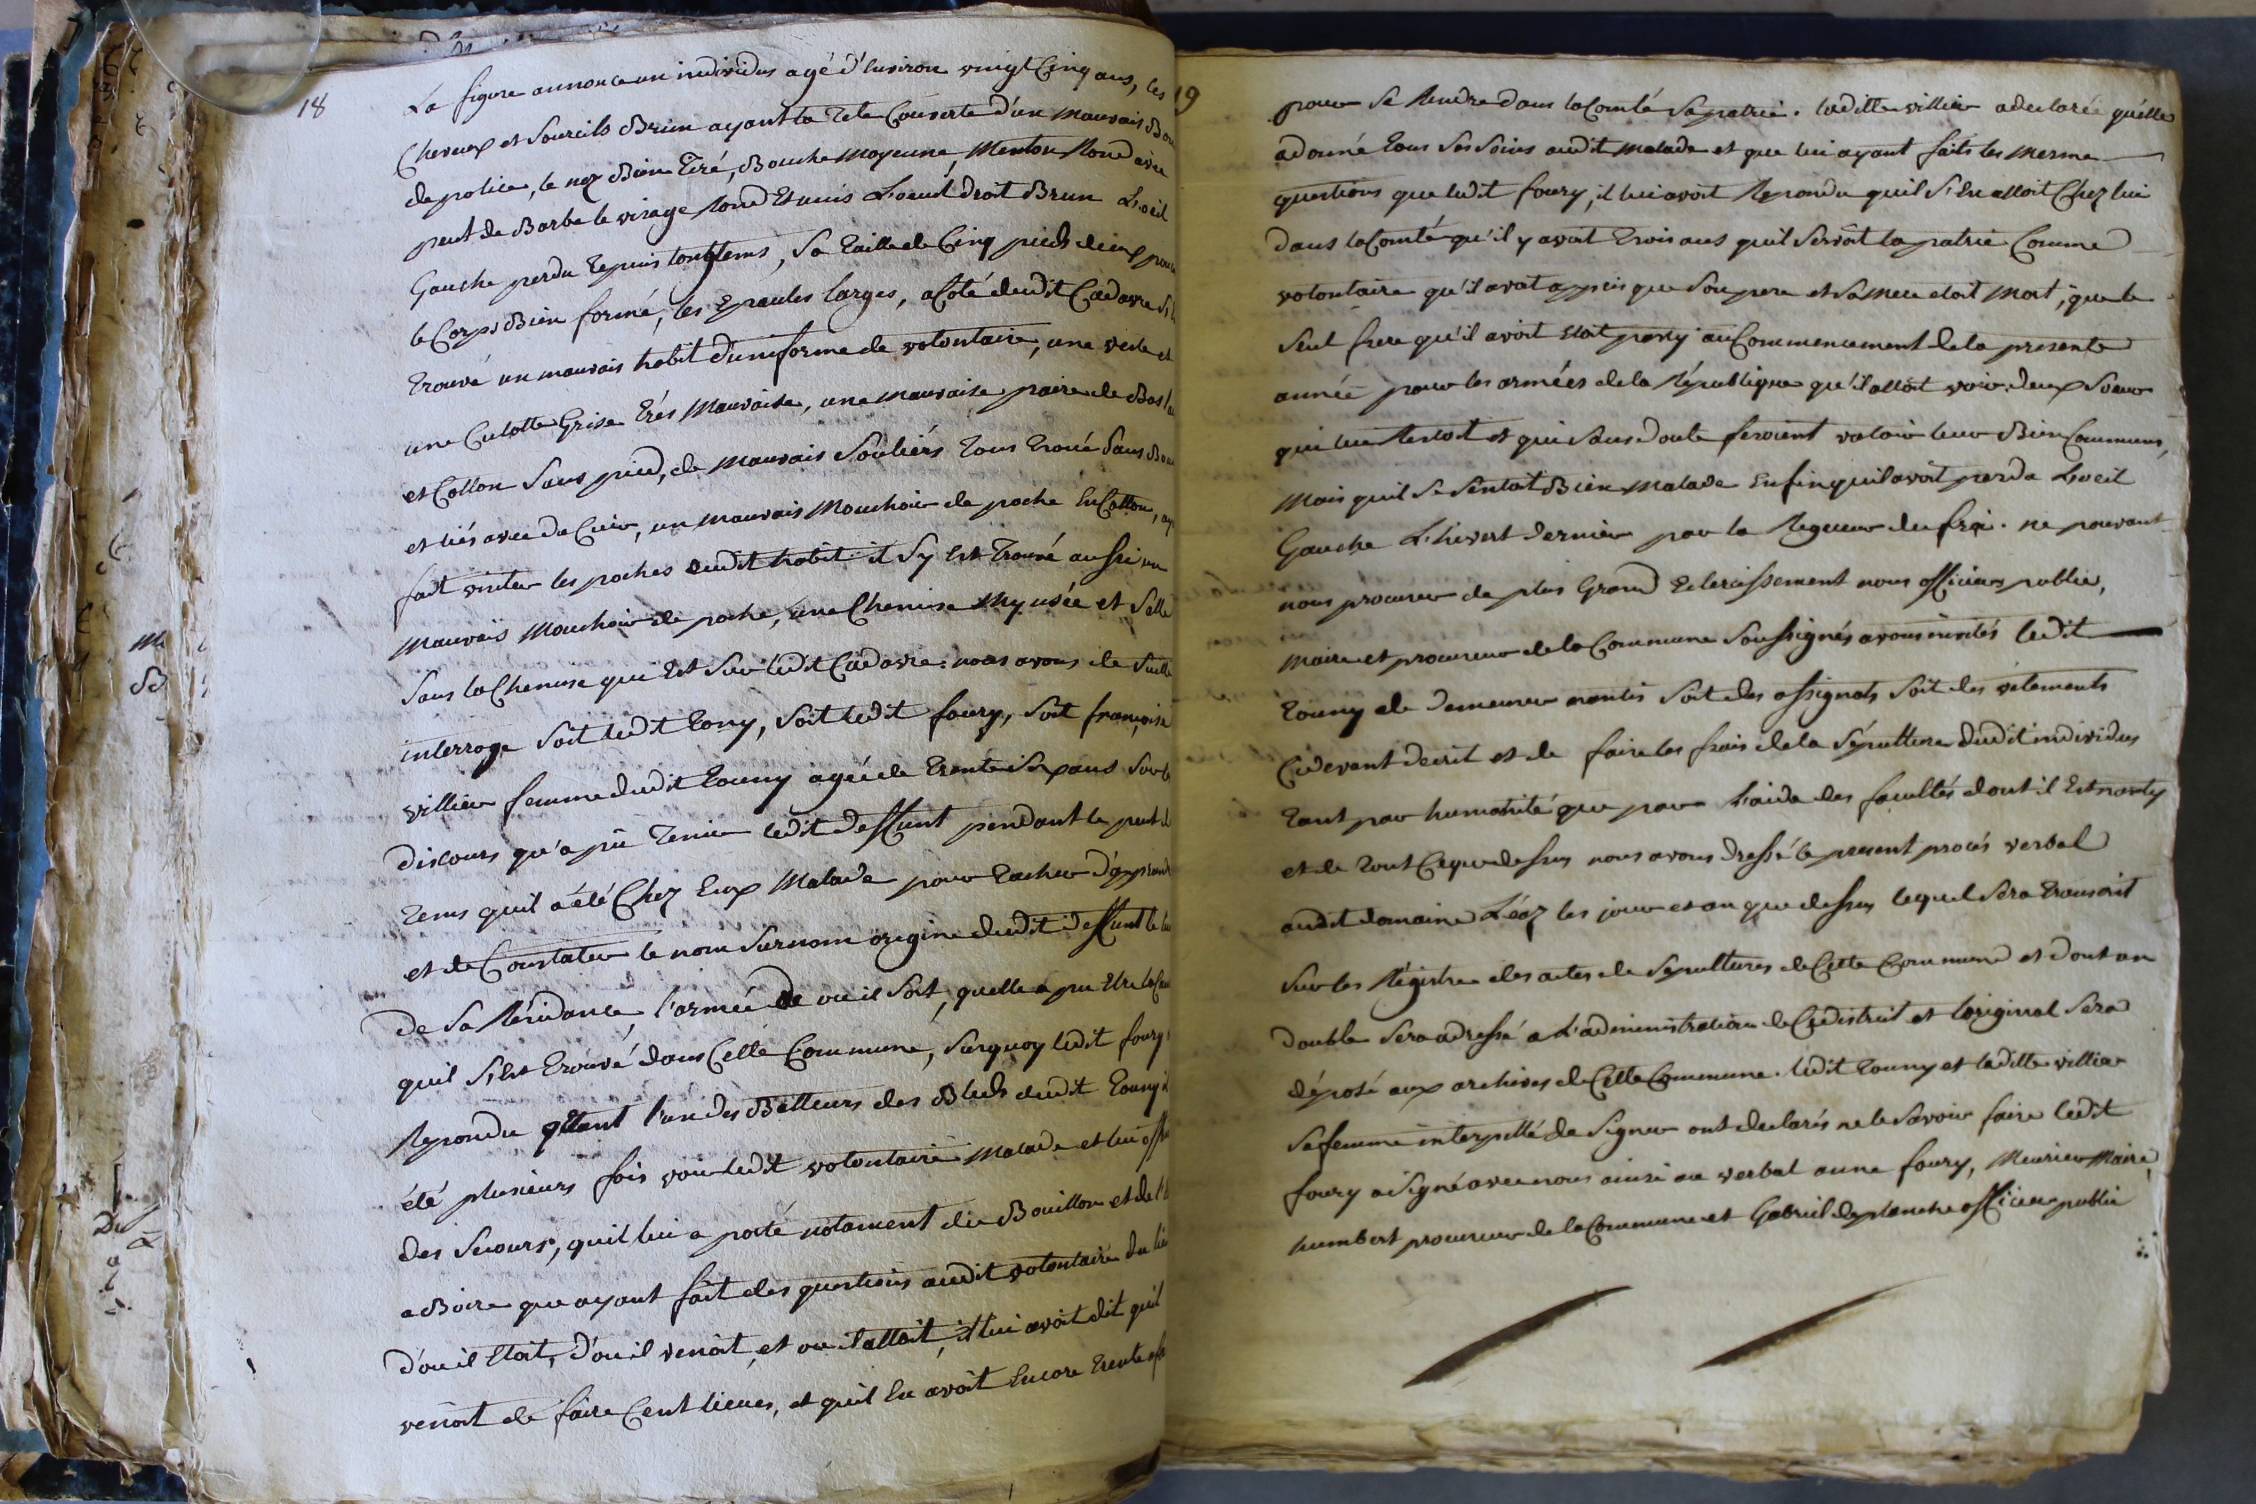 18
La figure annonce un individus agé d'Environ vingt Cinq ans, les
Cheveux et Sourcils Brun ayant la Tete Couverte d'un mauvais Bon
de police, le nez Bien Tiré, Bouche Moyenne, Menton Rond avec
peut de Barbe le visage Rond Et unis L'oeuil droit Brun L'oeil
Gauche perdu Depuis longtems, Sa Taille de Cinq pieds deux pouce
le Corps Bien formé, les Epaules larges, a Coté dudit Cadavre S'est
Trouvé un mauvais habit d'uniforme de volontaire, une veste et
une Culotte Grise Trés Mauvaise, une mauvaise paire de Bas
et Cotton Sans pied, de Mauvais Souliérs Tous Troué Sans
et liés avec du Cuir, un mauvais Mouchoir de poche En Cotton, ay
fait visiter les poches dudit habit il S'y Est Trouvé aussi un
Mauvais Mouchoir de poche, une Chemise usée et Salle
Sans la Chemise qui Est Sur ledit Cadavre. nous avons de Suitte
interrogé Soit ledit Touny, Soit ledit foury, Soit françoise
villier femme dudit Touny agée de Trente Six ans Sur le
discours qu'a pû Tenir ledit deffunt pendant le peut de
Tems quil a été Chez Eux Malade pour Tacher d'apprend
et de Constater le nom Surnom origine dudit deffunt le lieu
de Sa Résidance l'armée de ou il Sort, quelle a pu Etre la Cau
quil S'est Trouvé dans Cette Commune, Surquoy ledit foury
Repondu qEtant l'un des Batteurs des Bleds dudit Touny il
été plusieurs fois voir ledit volontaire Malade et lui offr
des Secours, quil lui a porté notament du Bouillon et de l'
a Boire que ayant fait des questions audit volontaire du lieu
d'ou il Etoit, d'ou il venoit, et ou il alloit, il lui avoit dit qu'il
venoit de faire Cent lieues, et quil En avoit Encore Trente
19
pour Se Rendre dans la Comté Sa patrie. laditte villier a declarée qu'elle
a donné Tous Ses Soins audit Malade et que lui ayant faits les Mesme
questions que ledit foury, il lui avoit Repondu quil S'En alloit Chez lui
dans la Comté qu'il y avoit Trois ans quil Servoit la patrie Comme
volontaire qu'il avoit appris que Son pere et Sa Mere etoit Mort, que le
Seul frere qu'il avoit Etoit party au Commencement de la presente
année pour les armées de la République qu'il alloit voir deux Soeur
qui lui Restoit et qui Sans doute feroient valoir leur Bien Commun,
Mais quil Se Sentoit Bien Malade Enfin quil avoit perdu L'oeil
Gauche L'hivert dernier par la Rigueur du froi. ne pouvant
nous procurer de plus Grand Eclercissement nous officiers public,
Maire et procureur de la Commune Soussignés avons invités ledit
Touny de demeurer nantis Soit des assignats Soit des vétements
Cidevant decrit et de faire les frais de la Sépulture dudit individus
Tant par humanité que par L'aide des facultés dont il Est nanty
et de Tout Ceque dessus nous avons dressé le present procés verbal
audit domaine L'éaz les jour et an que dessus lequel Sera Transcrit
Sur les Régistre des actes de Sepultures de Cette Commune et dont un
double Sera adressé a L'administration de Ce district et l'original Sera
déposé aux archives de Cette Commune. ledit Touny et laditte villier
Sa femme interpellé de Signer ont declarés ne le Savoir faire ledit
foury a Signé avec nous ainsi au verbal anne foury, Meurier Maire
humbert procureur de la Commune et Gabriel deplanche officier public